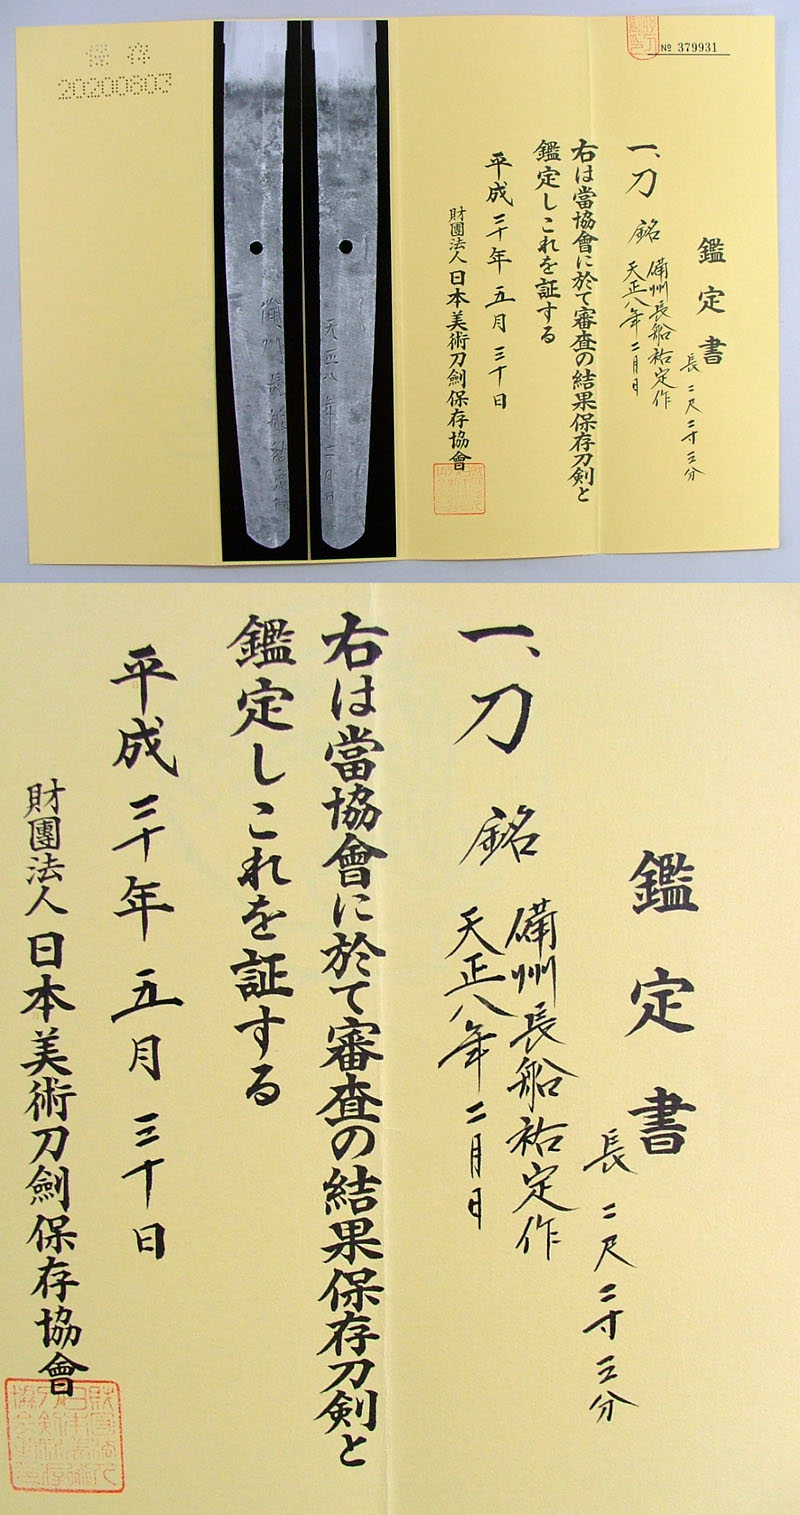 保存
№ 379931
鑑定書
長二尺二寸三分
一、刀 銘 備州長船祐定作
天正八年二月日
右は當協會に於て審査の結果保存刀剣と
鑑定しこれを証する
平成二十年五月三十日
財團法人日本美術刀劍保存協會
天正八年二月日
備州長船祐定作
鑑定書
長二尺二寸三分
一、刀 銘 備州長船祐定作
天正八年二月日
右は當協會に於て審査の結果保存刀剣と
鑑定しこれを証する
平成二十年五月三十日
財團法人日本美術刀劍保存協會